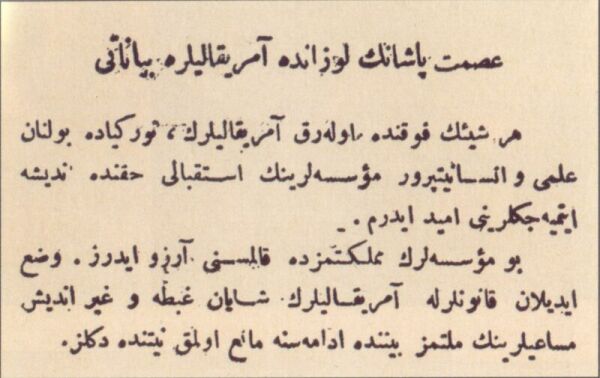 عصمت پاشانك لوزانده آمریقالیلره بیاناتی
هر شیئك فوقنده اوله‌رق آمریقالیلرك، تورکیاده بولنان
علمی و انسانیتپرور مؤسسه‌لرینك استقبالی حقنده ندیشه
ایتمیه‌جکلرینی امید ایدرم.
بو مؤسسه‌لرك مملکتمزده قالمسنی آرزو ایدرز. وضع
ایدیلان قانونلرله آمریقالیلرك شایان غبطه و غیر اندیش
مساعیلرینك ملتمز بیننده ادامه‌سنه مانع اولمق نیتنده دکلز.